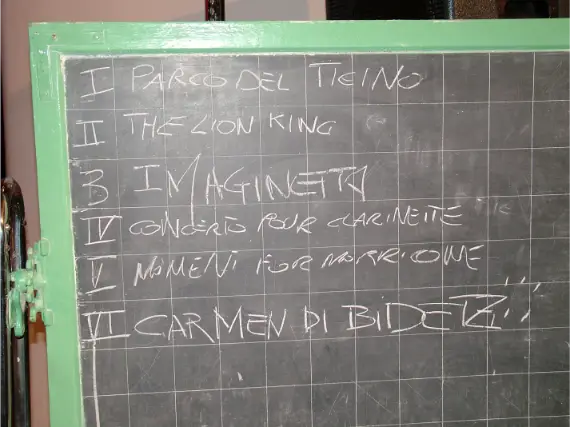 I PARCO DEL TICINO
II THE LION KING
3 IMAGINETTA
IV CONCERTO POUR CLARINETTE
V MOMENT FOR MORRICONE
VI CARMEN DI BIDETZ!!!